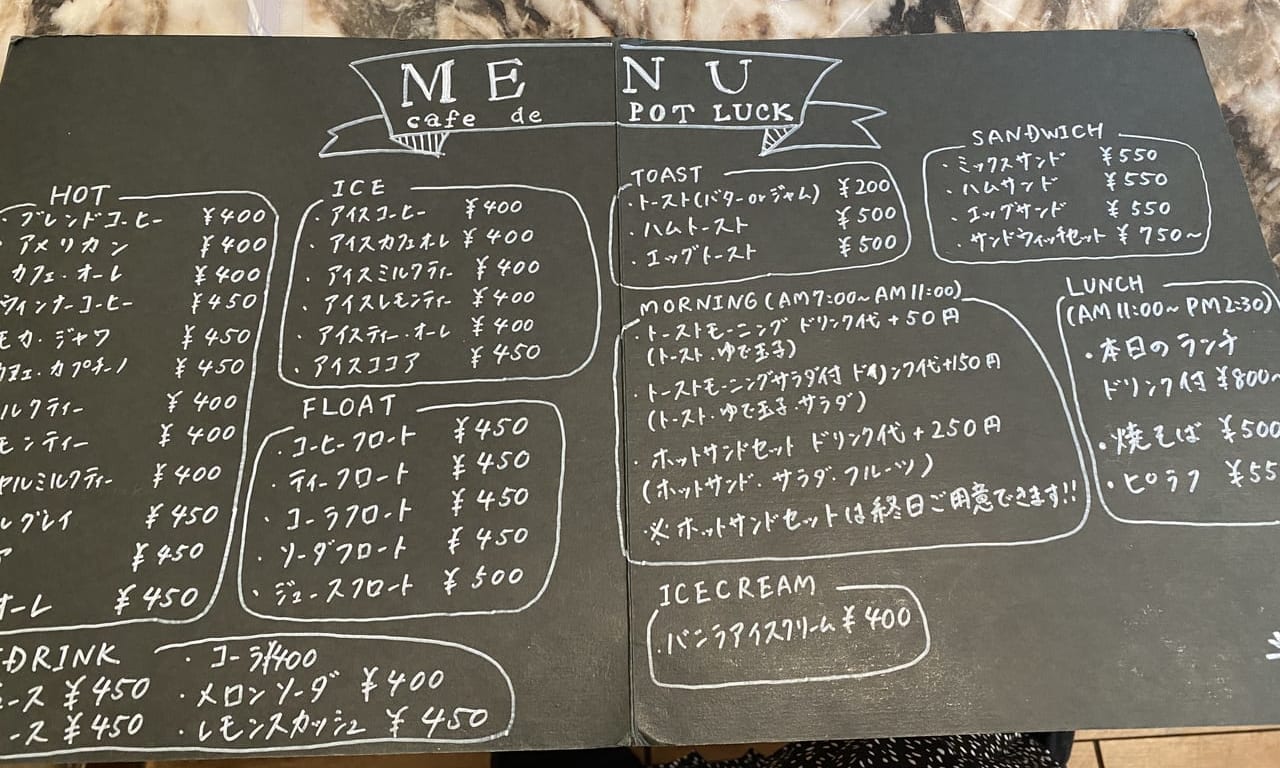 MENU
cafe de POT LUCK
HOT
・ブレンドコーヒー ¥400
・アメリカン ¥400
カフェ・オーレ ¥400
ウィンナーコーヒー ¥450
モカ・ジャワ ¥450
カフェ・カプチーノ ¥450
ルクティー ¥400
モンティー ¥400
ヤルミルクティー ¥400
ルグレイ ¥450
ア ¥450
オーレ ¥450
ICE
・アイスコーヒー ¥400
・アイスカフェオレ ¥400
・アイスミルクティー ¥400
・アイスレモンティー ¥400
・アイスティー・オーレ ¥400
・アイスココア ¥450
FLOAT
・コーヒーフロート ¥450
・ティーフロート ¥450
・コーラフロート ¥450
・ソーダフロート ¥450
・ジュースフロート ¥500
DRINK
ース ¥450
ース ¥450
・コーラ ¥400
・メロンソーダ ¥400
・レモンスカッシュ ¥450
TOAST
・トースト(バターorジャム) ¥200
・ハムトースト ¥500
・エッグトースト ¥500
SANDWICH
・ミックスサンド ¥550
・ハムサンド ¥550
・エッグサンド ¥550
・サンドウィッチセット ¥750~
MORNING(AM7:00~AM11:00)
・トーストモーニング ドリンク代+50円
(トースト・ゆで玉子)
・トーストモーニングサラダ付 ドリンク代+150円
(トースト・ゆで玉子・サラダ)
・ホットサンドセット ドリンク代+250円
(ホットサンド・サラダ・フルーツ)
・※ホットサンドセットは終日ご用意できます!!
LUNCH
(AM11:00~PM2:30)
・本日のランチ
ドリンク付 ¥800~
・焼そば ¥500
・ピラフ ¥55
ICECREAM
・バニラアイスクリーム ¥400